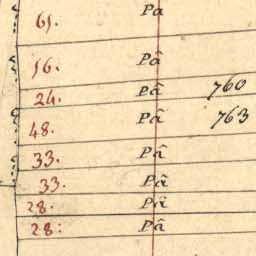 61. Pa
56. Pâ
24. Pâ 760
48. Pâ 763
33. Pâ
33. Pâ
28. Pâ
28: Pâ